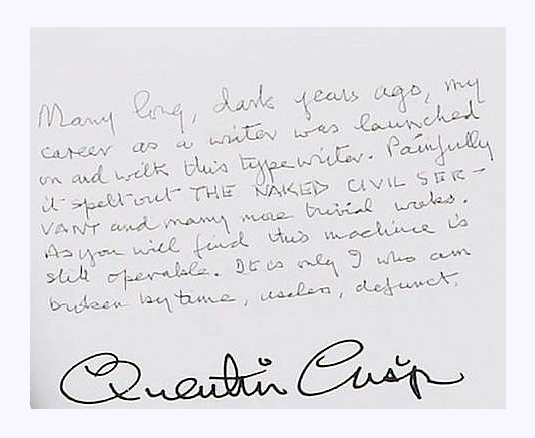 Many long, dark years ago, my
career as a writer was launched
on and with this typewriter. Painfully
it spelt out THE NAKED CIVIL SER-
VANT and many more trivial works.
As you will find this machine is
still operable. It is only I who am
broken by time, useless, defunct.
Quentin Crisp